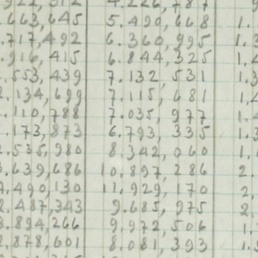 922,312 4.226,787 9
.663,645 5.490,668 1.
.717,492 6.360,995 1.3
.916,415 6.844,325 1.4
.553,439 7.132,531 1.
2.134,699 7.115,681 1.4
.110,788 7.035,977 1.
.173,873 6.793,335 1.3
2.535,980 8.342,060 1.
3.639,686 10.897,286 2.
4.490,130 11.929,170 2.
2.487,343 9.685,975 2.
3.894,266 9.972,506 1.
2.878,601 8.081,393 1.5